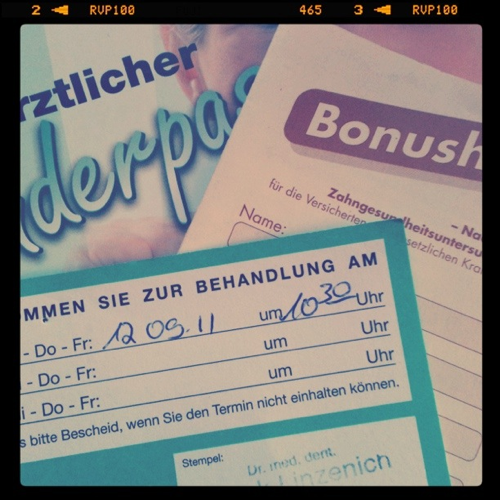 2 RVP100 465 3 RVP100
rztlicher
nderpas
Bonush
für die Versicherten setzlichen Kra
Zahngesundheitsuntersu
– Na
Name:
OMMEN SIE ZUR BEHANDLUNG AM
- Do - Fr: 12 09.11 um 10 30 Uhr
. - Do - Fr: um Uhr
i - Do - Fr: um Uhr
s bitte Bescheid, wenn Sie den Termin nicht einhalten können.
Stempel:
Dr. med. dent.
inzenich